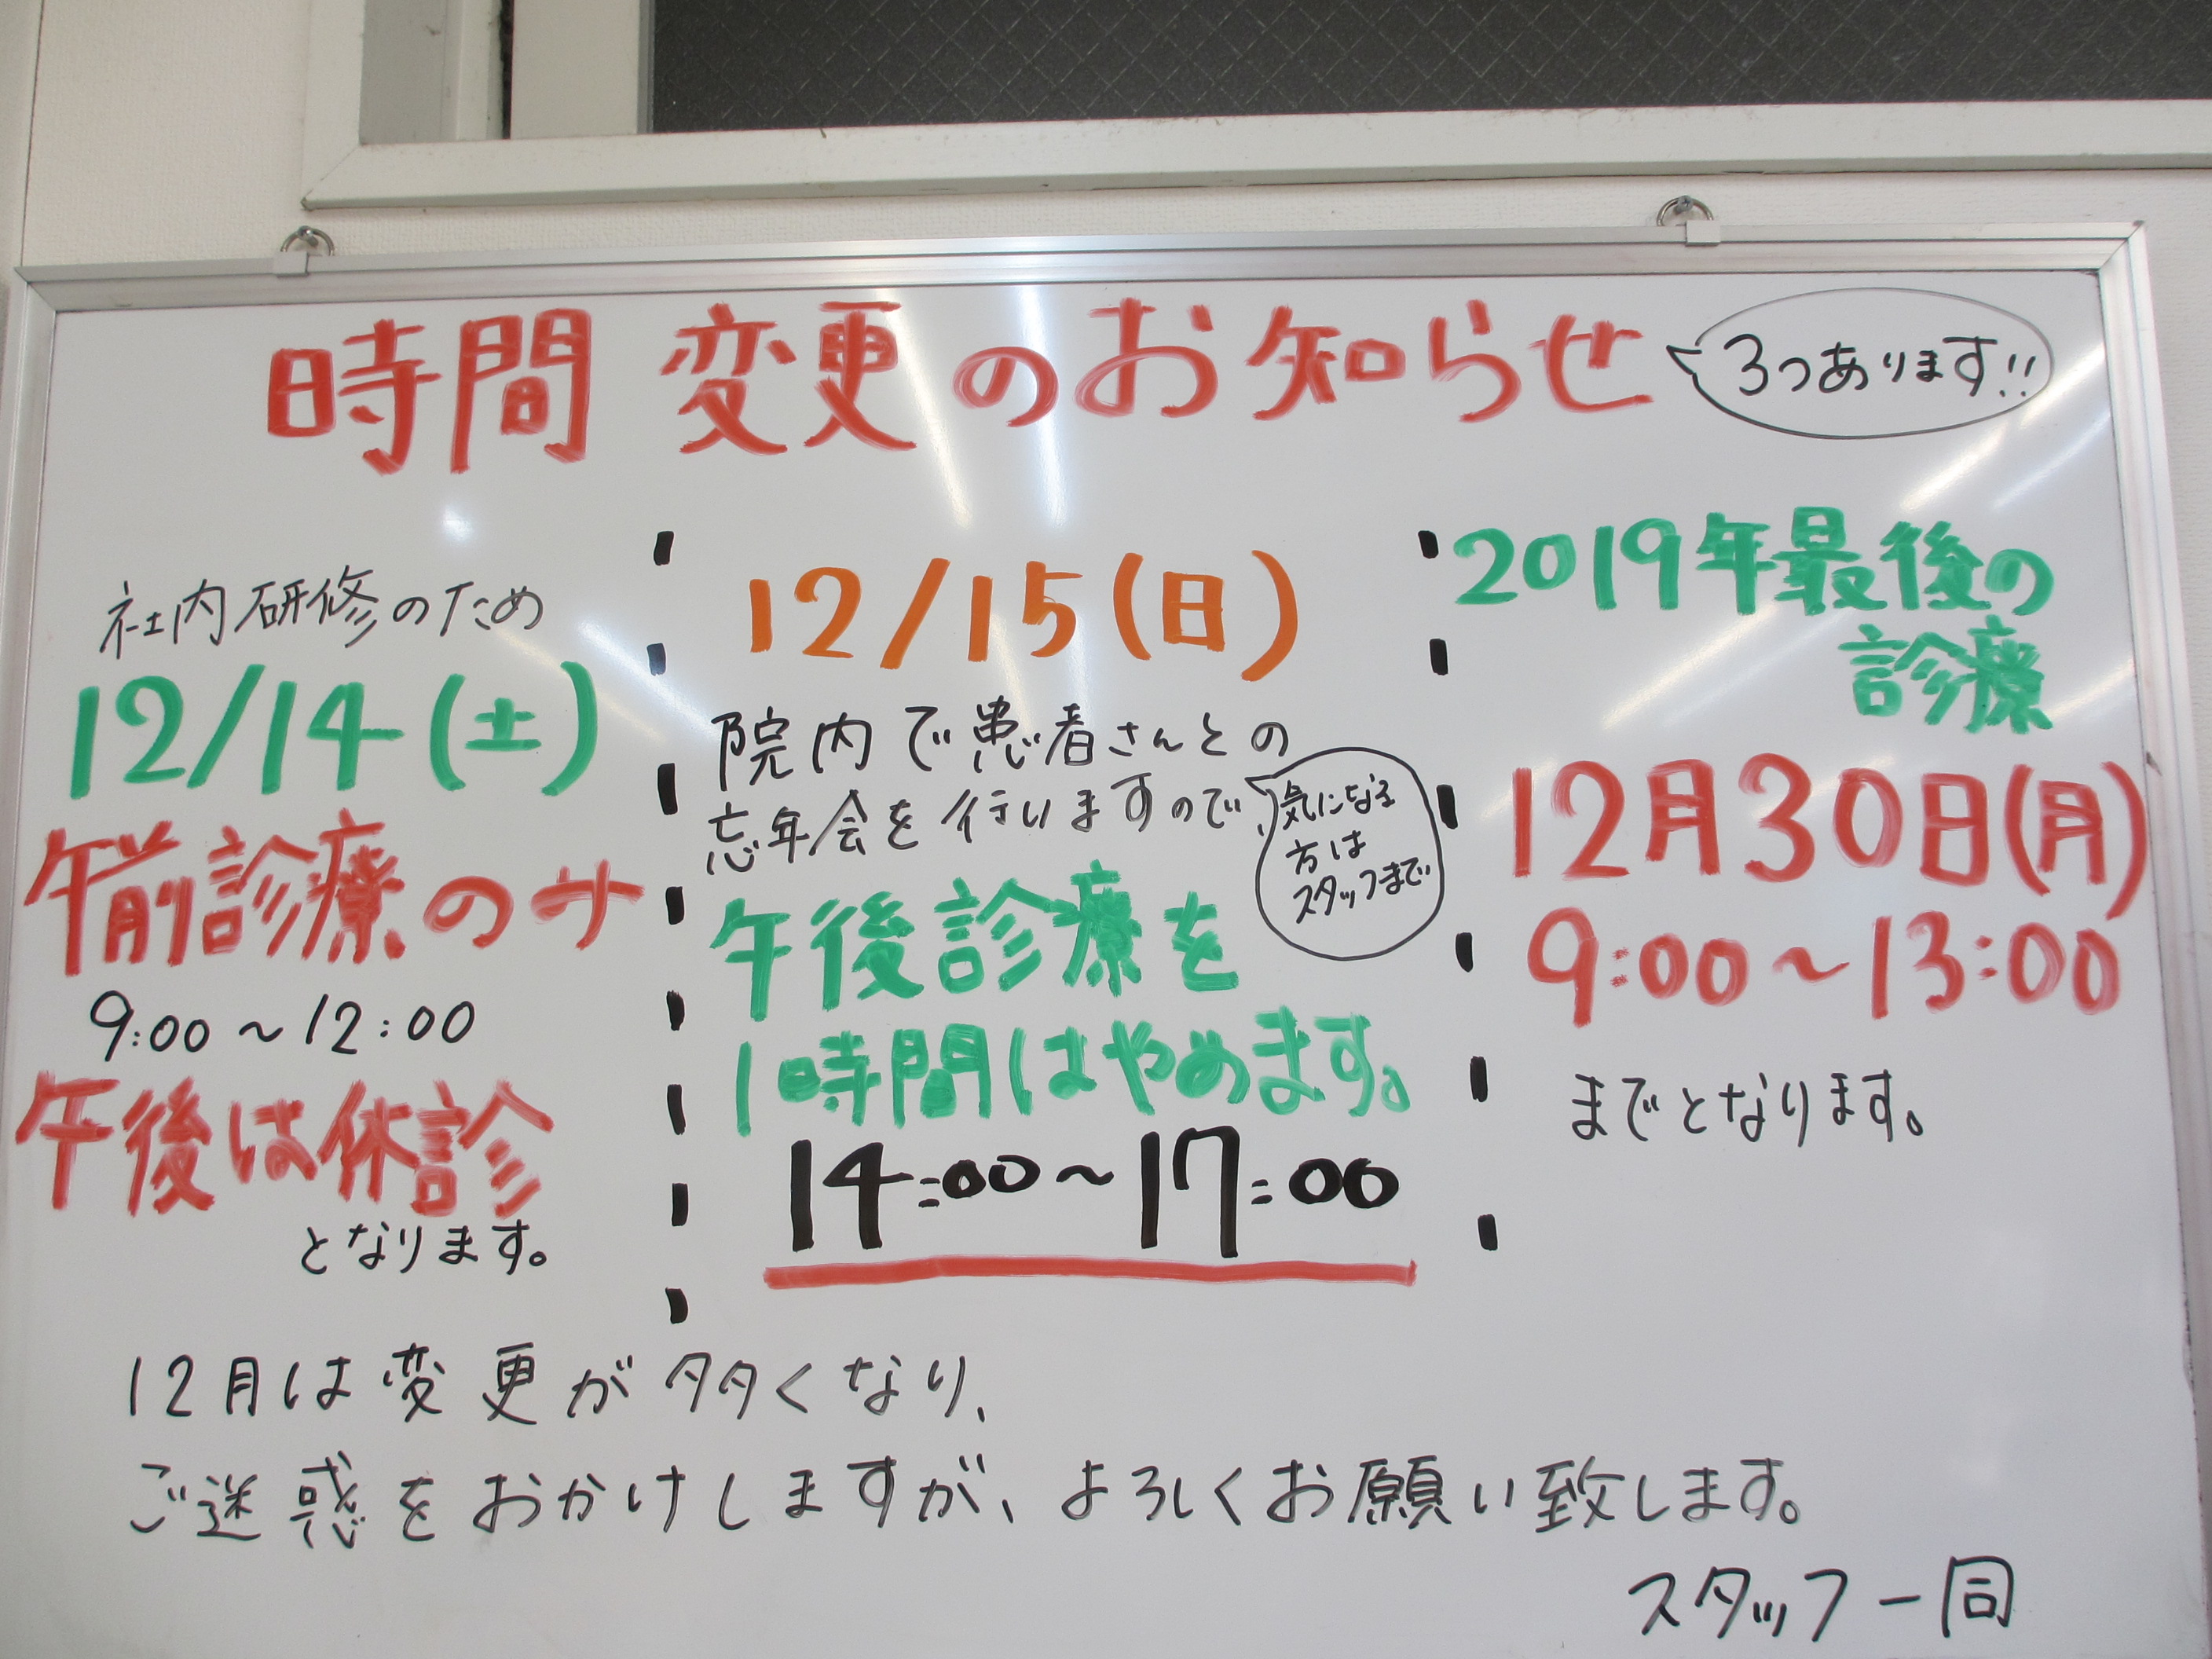 時間変更のお知らせ
3つあります!!
社内研修のため
12/14(土)
午前診療のみ
9:00~12:00
午後は休診
となります。
12/15(日)
院内で患者さんとの
忘年会を行いますので、
気になる
方は
スタッフまで
午後診療を
1時間はやめます。
14:00~17:00
2019年最後の
診療
12月30日(月)
9:00~13:00
までとなります。
12月は変更が多くなり、
ご迷惑をおかけしますが、よろしくお願い致します。
スタッフ一同